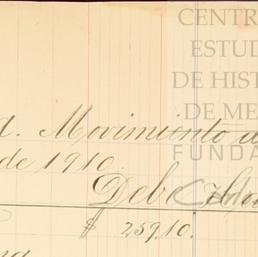 CENTR
ESTUD
DE HIST
DE ME
FUNDA
d. Movimiento d
de 1910.
Debe
$ 259.10.